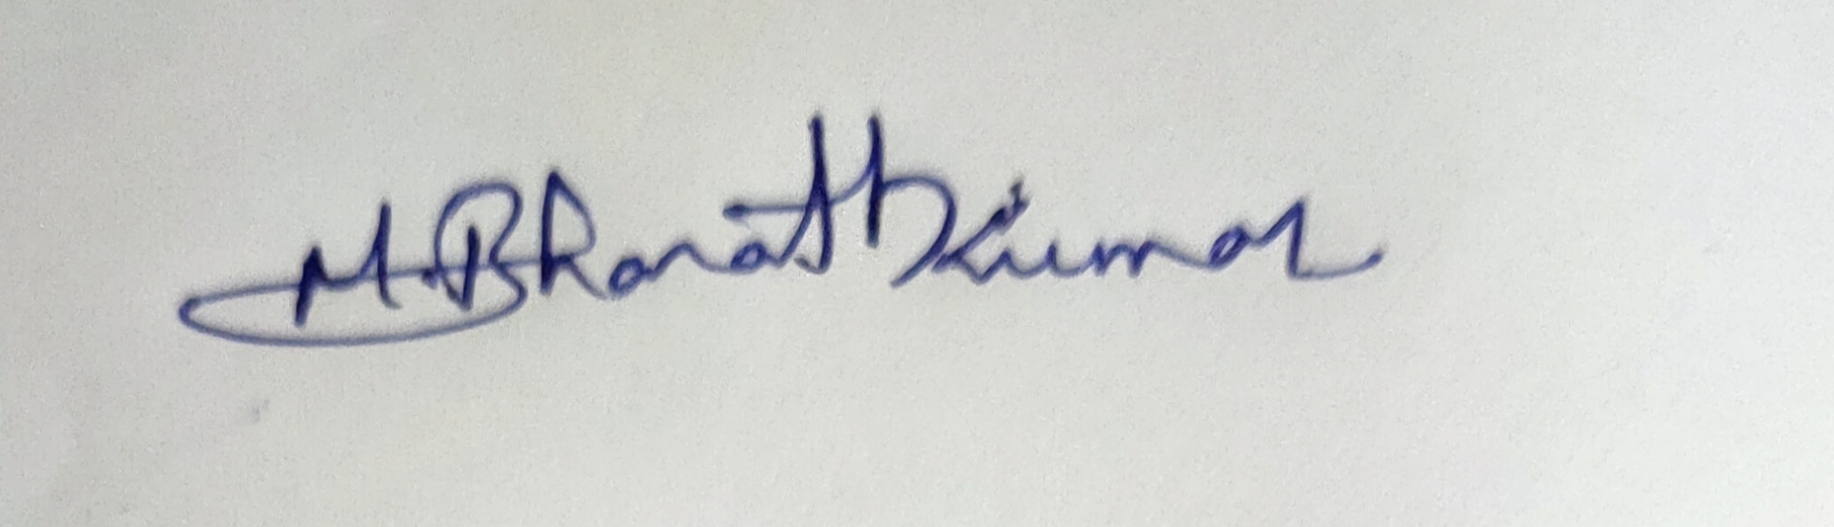 M.Bharath Kumar